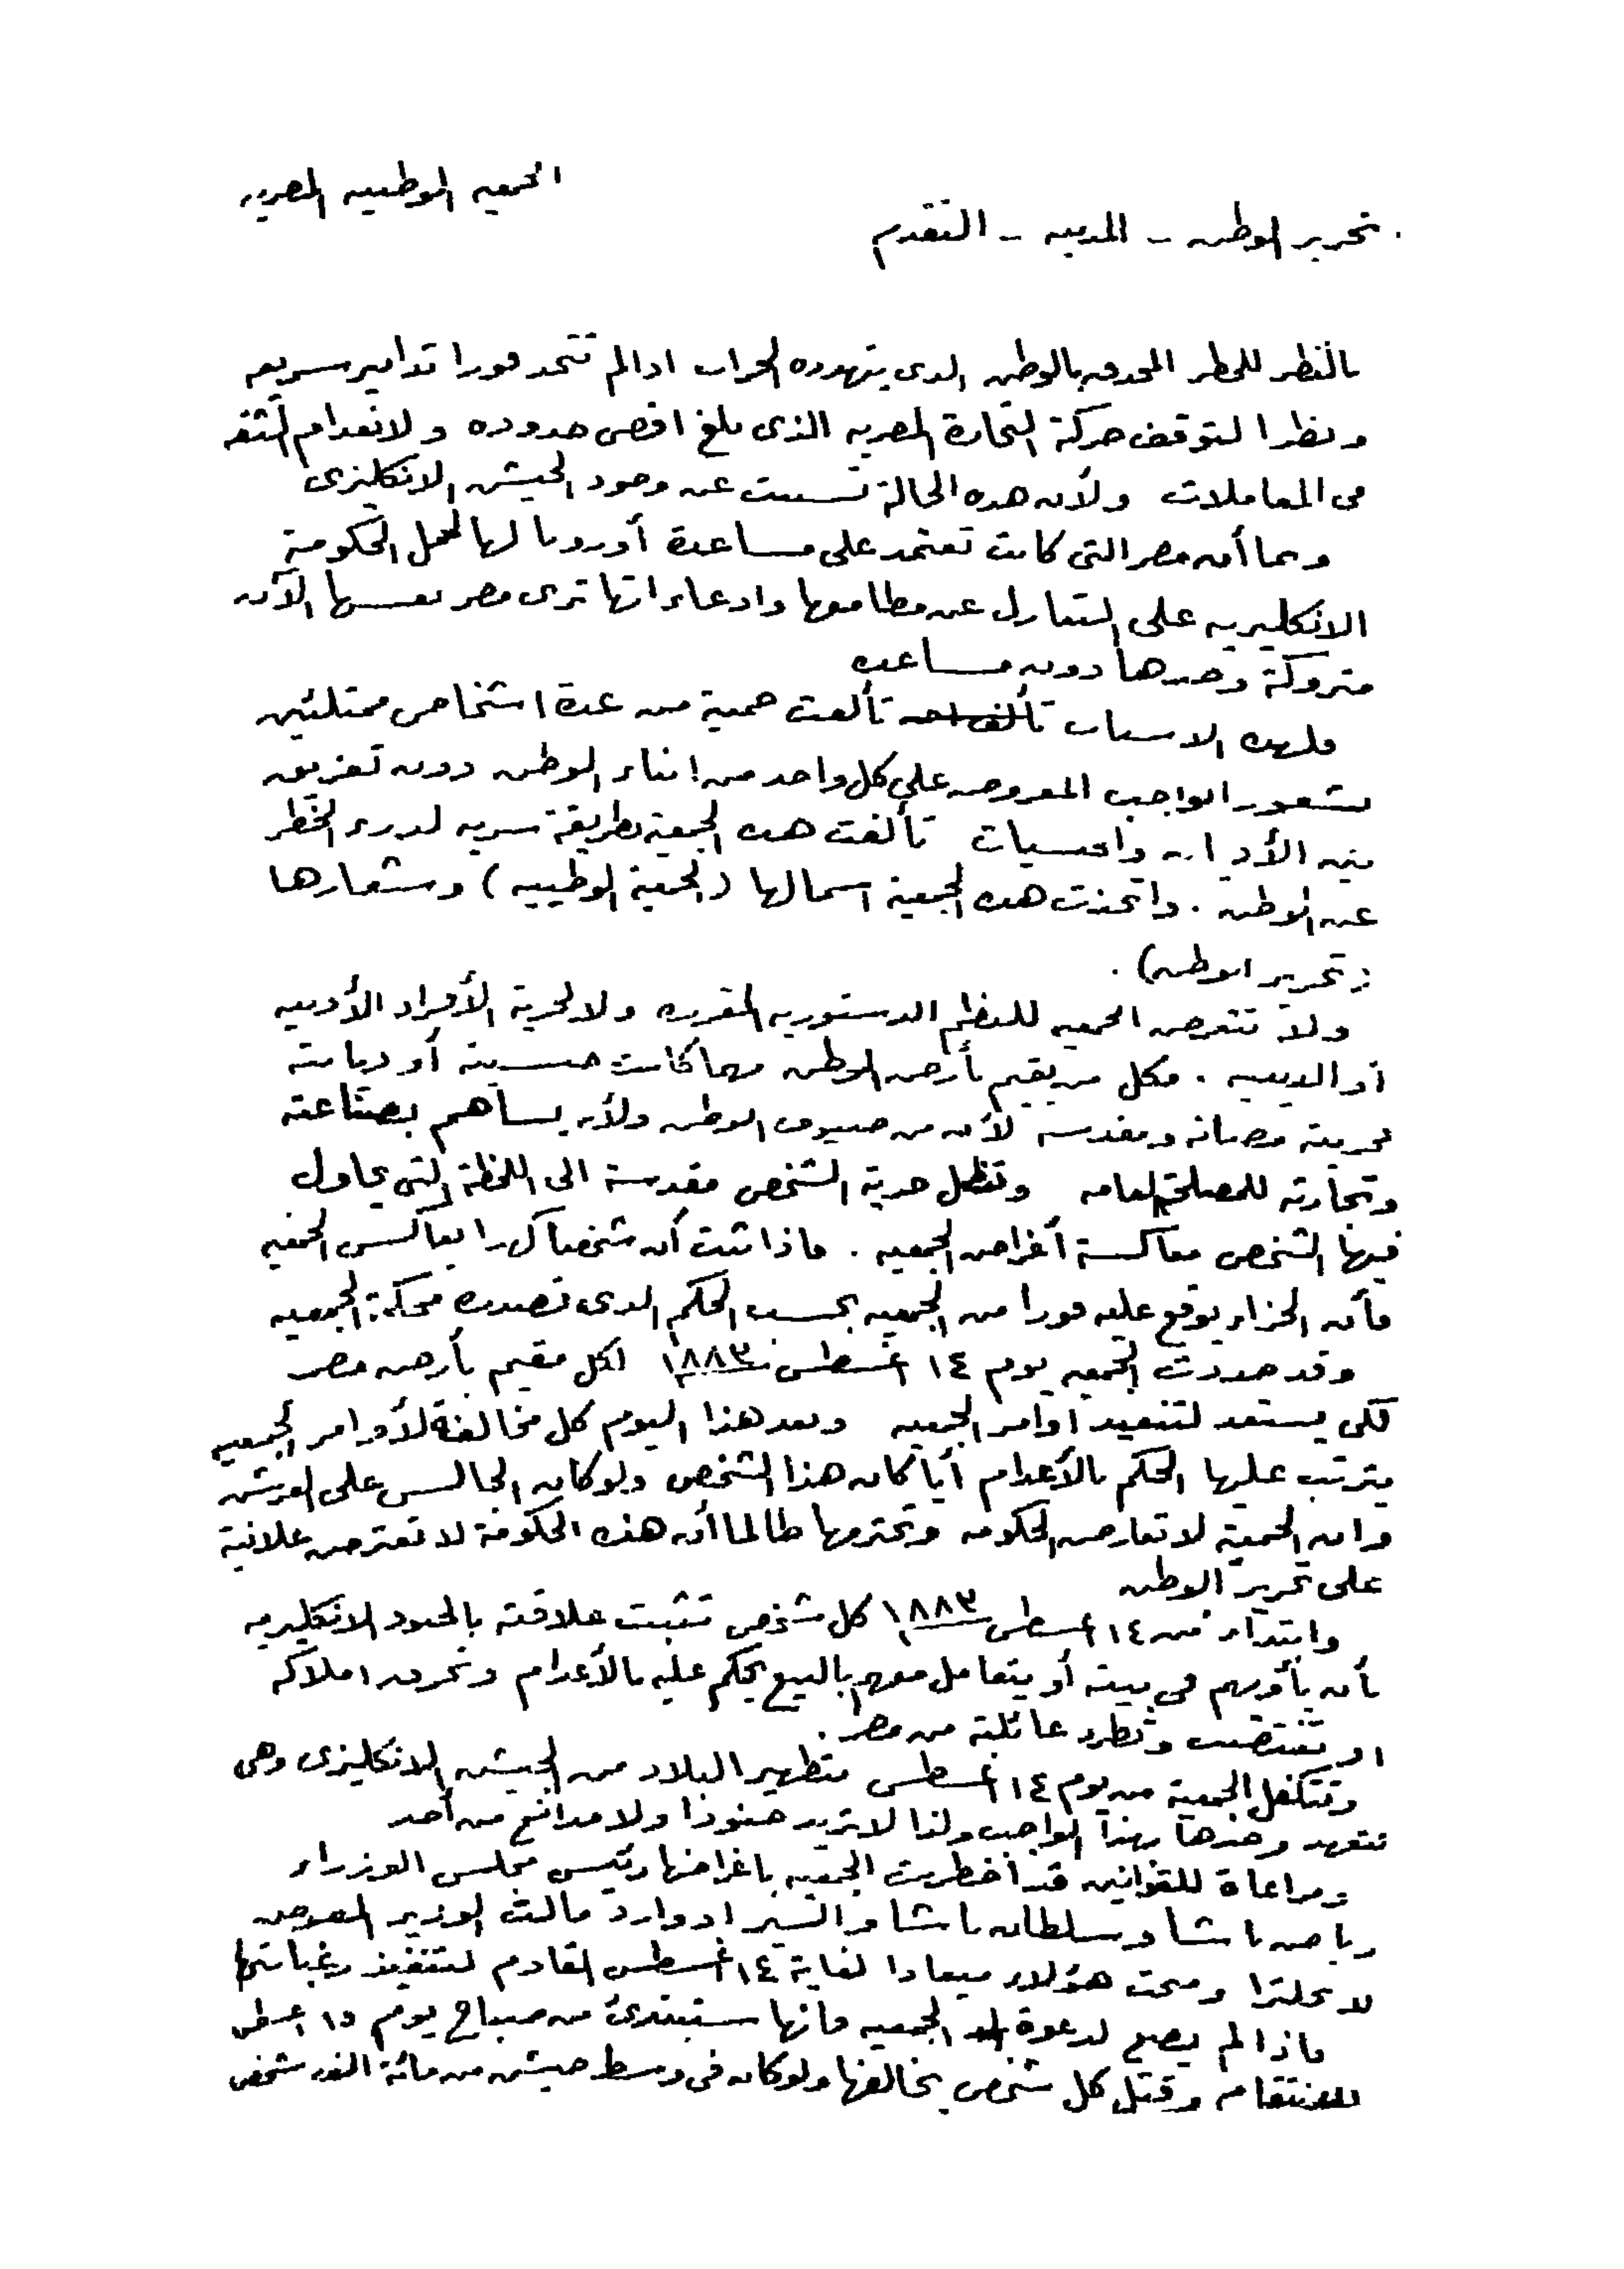 الجمعيه الوطنيه المصريه
تحرير الوطن - المدنيه - التقدم
بالنظر للخطر المحدق بالوطن الذى يتهدده الخراب اذا لم تتخذ فورا تدابير سريعه
ونظرا لتوقف حركة التجارة المصريه الذى بلغ اقصى حدوده ولانعدام الثقه
فى المعاملات ولأن هذه الحالة تسببت عن وجود الجيش الانكليزى
وبما أن مصر التى كانت تعتمد على مساعدة أوروبا لها لحمل الحكومة
الانكليزيه على التنازل عن مطامعها وادعاءاتها ترى مصر نفسها الآن
متروكة وحدها دون مساعده
فلهذه الاسباب تألفت جمعية من عدة اشخاص ممتلئين
بشعور الواجب المفروض على كل واحد من ابناء الوطن دون تفريق
بين الأديان والجنسيات تألفت هذه الجمعية بطريقة سريه لدرء الخطر
عن الوطن . واتخذت هذه الجمعية اسما لها (الجمعية الوطنيه) وشعارها
(تحرير الوطن) .
ولا تتعرض الجمعيه للنظم الدستوريه المقرره ولا لحرية الأفراد الأدبيه
أو الدينيه . فكل من يقيم بأرض الوطن مهما كانت جنسيته أو ديانته
فحريته مصانه ومقدسه لأنه من ضيوف الوطن ولأنه يساهم بصناعته
وتجارته للمصلحة العامه وتظل حرية الشخص مقدسة الى اللحظة التى يحاول
فيها الشخص معاكسة أغراض الجمعيه . فاذا ثبت أن شخصا كل را يعاكس الجمعيه
فأن الجزاء يوقع عليه فورا من الجمعيه بحسب الحكم الذى تصدره محكمة الجمعيه
وقد حددت الجمعيه يوم ١٤ اغسطس سنة ١٨٨٣ لكل مقيم بأرض مصر
لكى يستعد لتنفيذ اوامر الجمعيه وبعد هذا اليوم كل مخالفة لأوامر الجمعيه
يترتب عليها الحكم بالأعدام أيا كان هذا الشخص ولو كان الجالس على العرش
وان الجمعية لا تعارض الحكومه وتحترمها طالما أن هذه الحكومة لا تعترض علانية
على تحرير الوطن
وابتداء من ١٤ اغسطس ١٨٨٣ كل شخص تثبت علاقته بالجنود الانكليزيه
بأن يأويهم فى بيته أو يتعامل معهم بالبيع يحكم عليه بالأعدام وتحرق املاكه
او تغتصب وتطرد عائلته من مصر .
وتتكفل الجمعية من يوم ١٤ اغسطس بتطهير البلاد من الجيش الانكليزى وهى
تتعهد وحدها بهذا الواجب ولذا لا تريد جنودا ولا مدافع من أحد
ومراعاة للقوانين قد أخطرت الجمعيه باغراضها رئيس مجلس الوزراء
رياض باشا وسلطان باشا والسير ادوارد مالت الوزير المفوض
لانجلترا ومنحت هؤلاء ميعادا لغاية ١٤ اغسطس القادم لتنفيذ رغباتها
فاذا لم يصغ لدعوة الجمعيه فانها ستبتدئ من صباح يوم ١٥ اغسطس
للانتقام وقتل كل شخص يخالفها ولو كان فى وسط جيش من مائة الف شخص